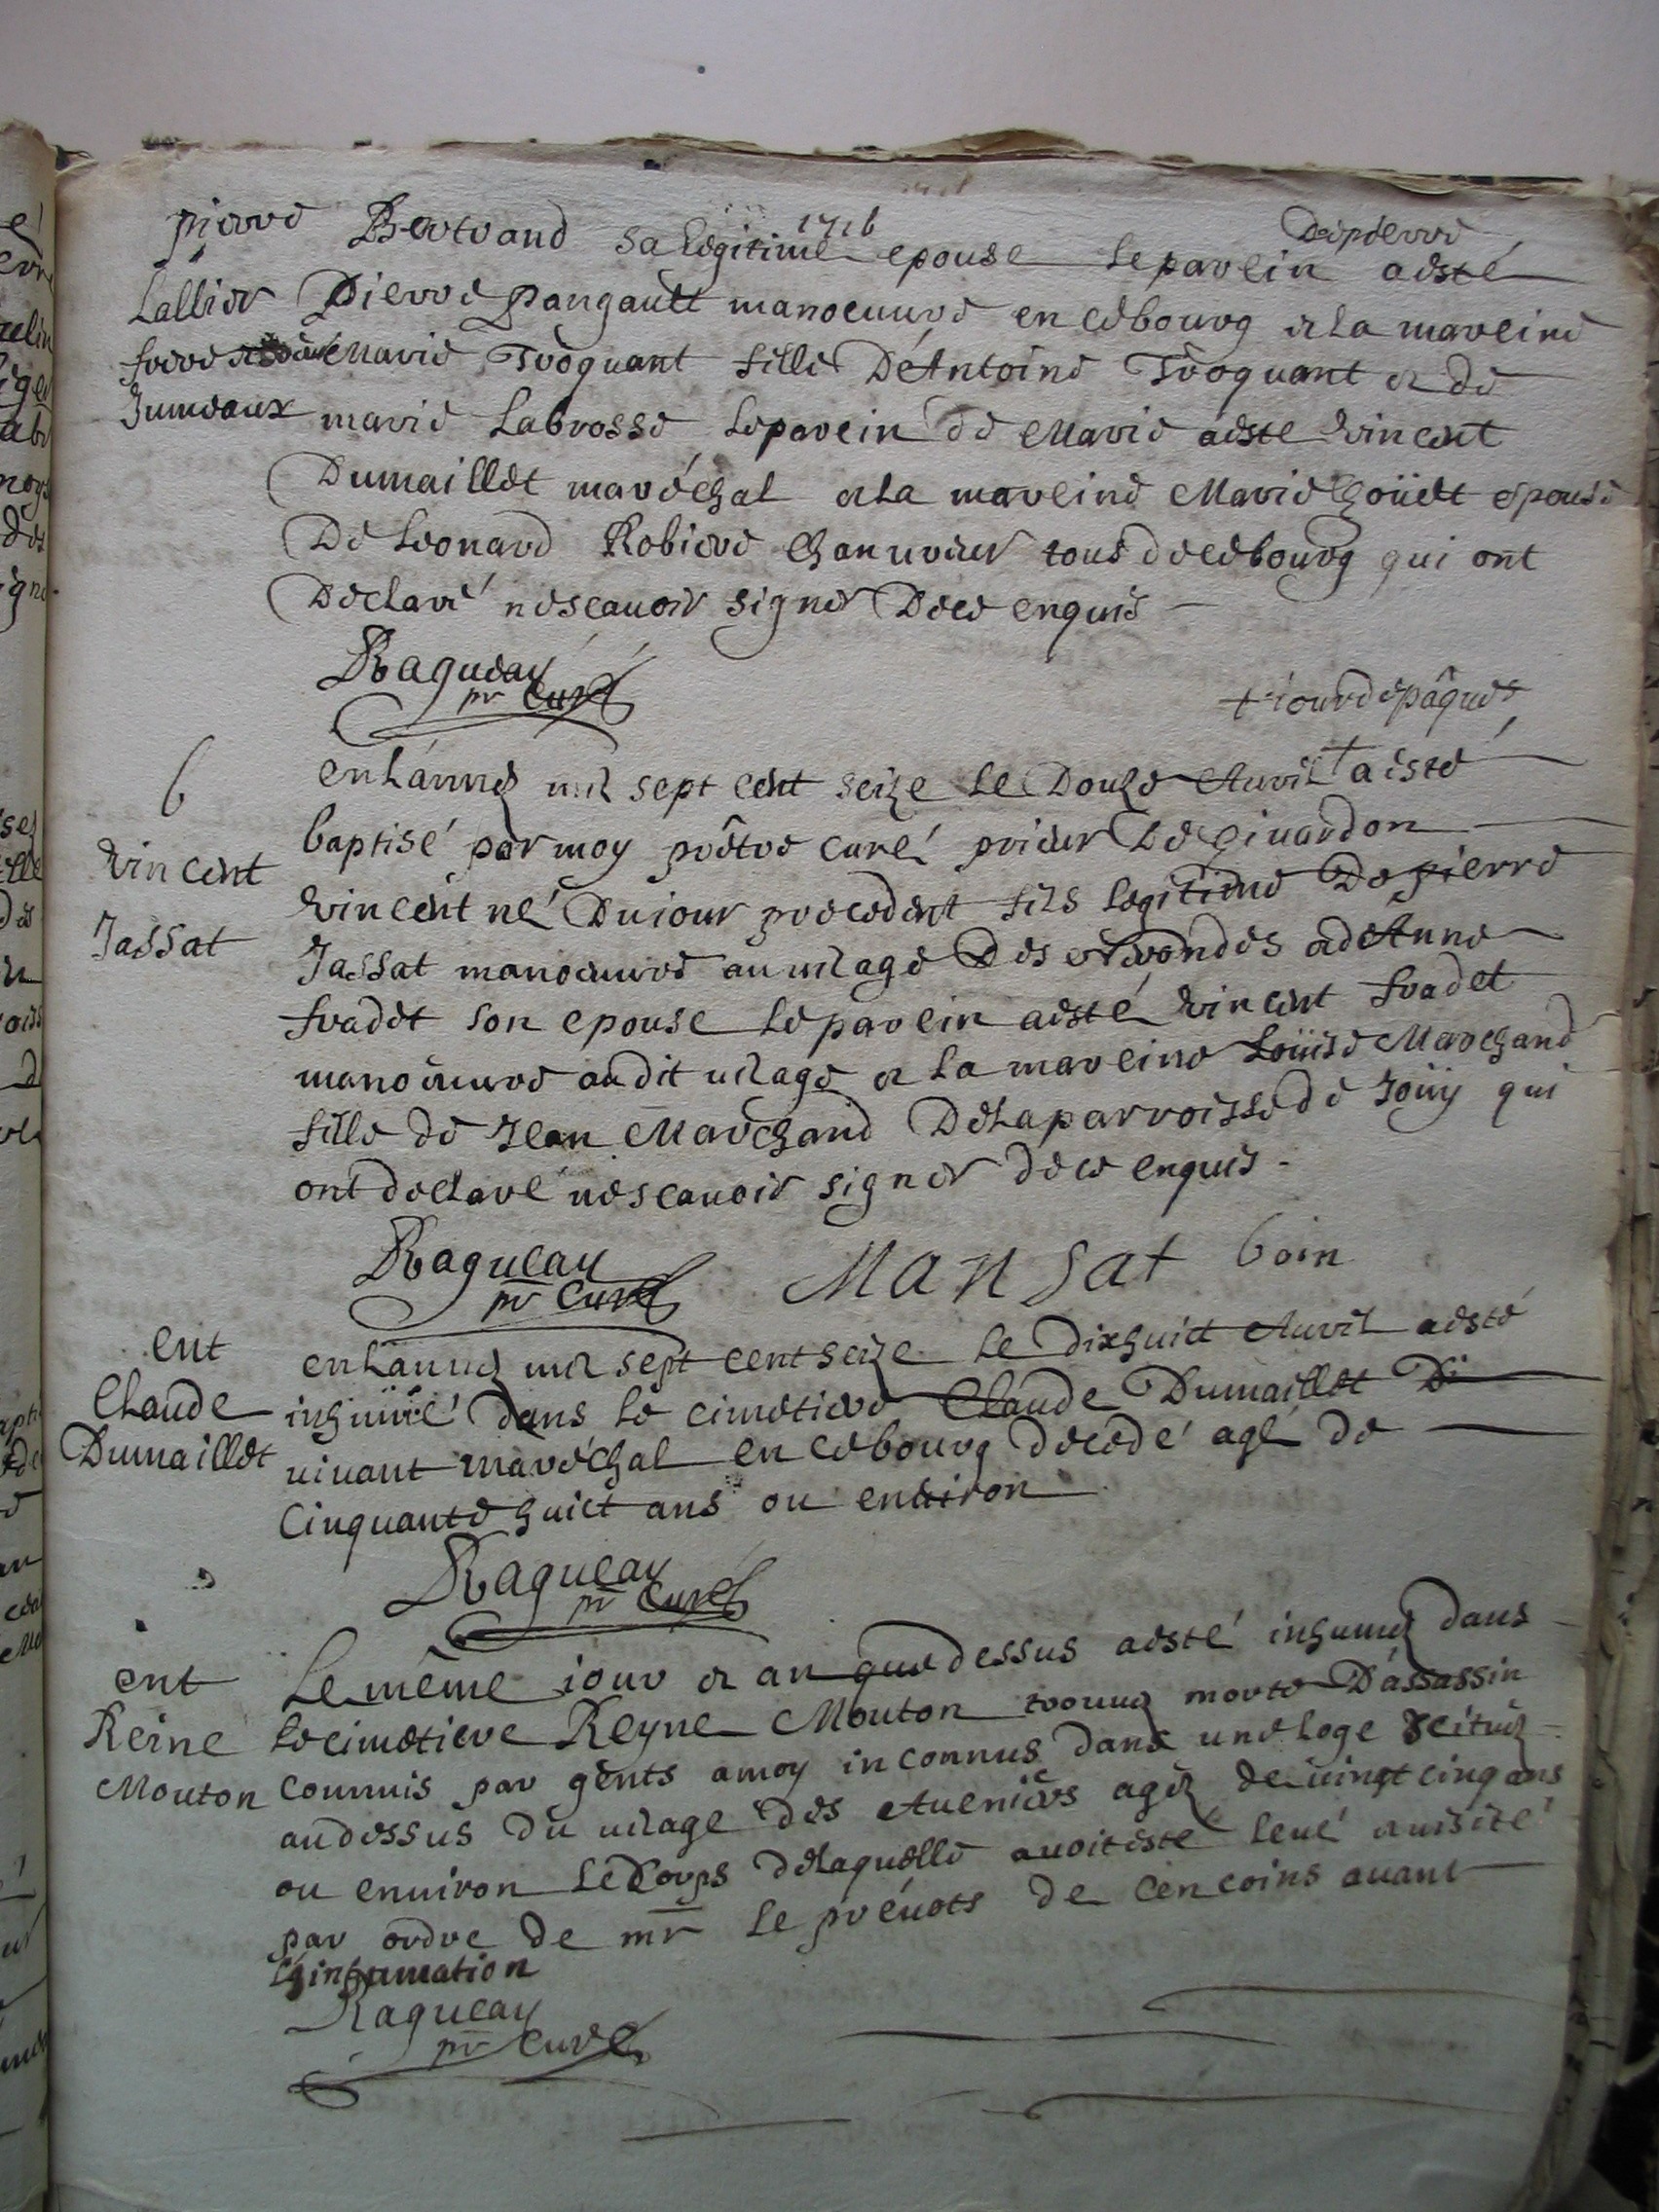 1716
pierre Bertrand sa legitime epouse le parein de pierre aesté
Lallier Pierre Pangault manoeuure en cebourg et la mareine
frere et soeur Marie Troquant fille D'Antoine Troquant et de
Jumeaux marie Labrosse le parein de Marie aeste Vincent
Dumaillet maréchal et la mareine Marie Choüet epouse
De Leonard Robiere Chanureur tous de cebourg qui ont
Declaré nescauoir signer Dece enquis
Ragueau
pr Curé
+ iour de pâques
b enLannée mil sept cent seize le Douze Auril + a esté
baptisé par moy prêtre curé prieur De giuardon
Vincent Vincent né Du iour precedent fils legitime De pierre
Jassat Jassat manoeuure au uilage Des et de Anne
fradet son epouse le parein aesté Vincent fradet
manoeuure audit uilage et la mareine Loüise Marchand
fille de Jean Marchand De la parroisse de Joüy qui
ont declaré nescauoir signer dece enquis
Ragueau Mansat boin
pr Curé
ent enLannée mil sept cent seize le Dixhuict Auril aesté
Claude inhumé dans le cimetiere Claude Dumaillet
Dumaillet uiuant maréchal en cebourg decedé agé de
Cinquante huict ans ou enuiron
Ragueau
pr Curé
ent Le même iour et an que dessus aesté inhumée dans
Reine le cimetiere Reyne Mouton trouuée morte D'assassin
Mouton Commis par gents amoy inconnus dans une loge scituée
audessus du uilage des Aueniers agée de uingt cinq ans
ou enuiron le Corps de laquelle auoit esté leué et uisité
par ordre de mr le préuots de Cencoins auant
L'inhumation
Ragueau
pr Curé